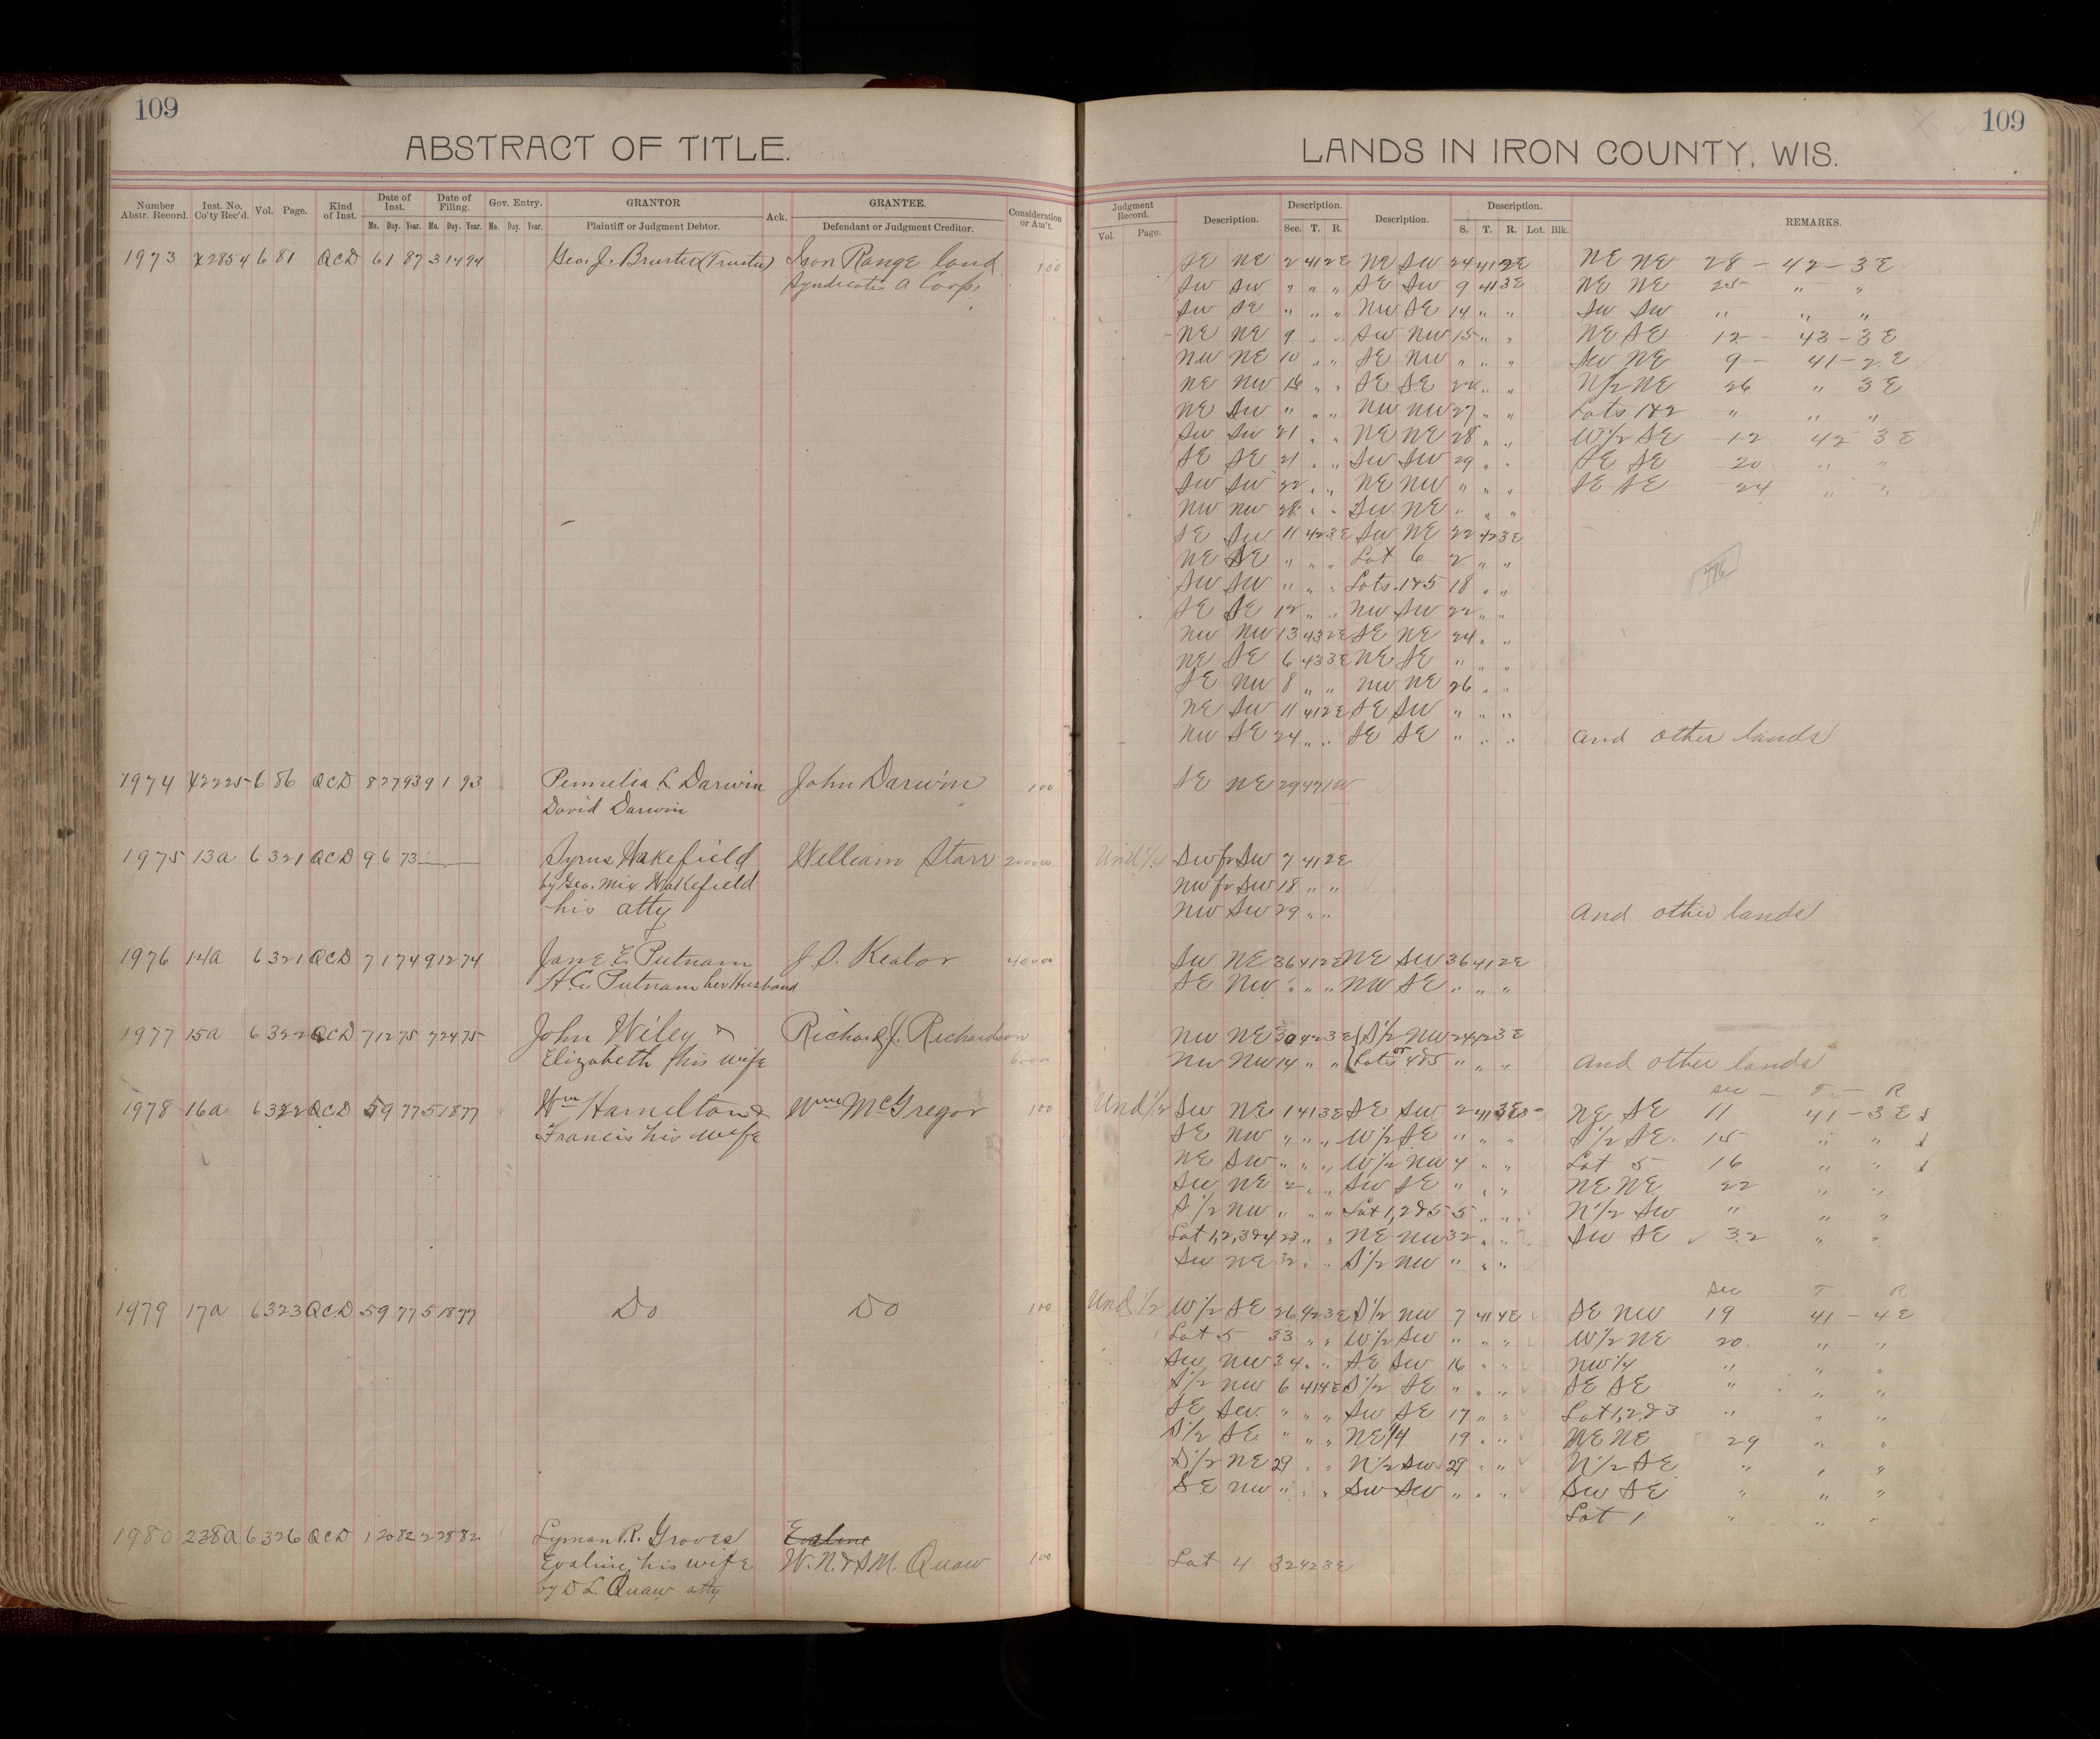 109
ABSTRACT OF TITLE.
Number Abstr. Record. Inst. No. Co'ty Rec'd. Vol. Page. Kind of Inst. Date of Inst. Date of Filing. Gov. Entry. GRANTOR Ack. GRANTEE. Consideration or Am't.
Mo. Day. Year. Mo. Day. Year. Mo. Day. Year. Plaintiff or Judgment Debtor. Defendant or Judgment Creditor.
1973 X2854 6 81 QCD 6 1 87 3 14 94 Geo. J. Bruster (Trustee) Iron Range land 1 00
Syndicate a Corp.
1974 X2225 6 86 QCD 8 27 93 9 1 93 Permelia L Darwin John Darwin 1 00
David Darwin
1975 13a 6 321 QCD 9 6 73 Syrus Wakefield William Starr 2000 00
by Geo. Mix Wakefield
his atty
1976 14a 6 321 QCD 7 1 74 9 12 74 Jane E Putnam J. O. Kealor 400 00
H.C. Putnam her Husband
1977 15a 6 322 QCD 7 12 75 7 24 75 John Wiley & Richard J. Richardson
Elizabeth his wife 60 00
1978 16a 6 322 QCD 5 9 77 5 18 77 Wm Hamelton & Wm McGregor 1 00
Francis his wife
1979 17a 6 323 QCD 5 9 77 5 18 77 Do Do 1 00
1980 238a 6 326 QCD 1 20 82 2 28 82 Lyman R. Groves Evaline
Evaline, his wife W. N. & S M. Quaw 1 00
by D L. Quaw atty
109
LANDS IN IRON COUNTY, WIS.
Judgment Record. Description. Description. Description. Description. REMARKS.
Vol. Page. Sec. T. R. S. T. R. Lot. Blk.
SE NE 2 41 2E NE SW 24 41 2E NE NE 28 - 42 - 3 E
SW SW " " " SE SW 9 41 3E NE NE 25 " "
SW SE " " " NW SE 14 " " SW SW " " "
NE NE 9 " " SW NW 15 " " NE SE 12 - 43 - 3 E
NW NE 10 " " SE NW " " " SW NE 9 - 41 - 2 E
NE NW 16 " " SE SE 22 " " N1/2 NE 26 " 3 E
NE SW " " " NW NW 27 " " Lots 1&2 " " "
SW SW 21 " " NE NE 28 " " W1/2 SE 12 42 3 E
SE SE 21 " " SW SW 29 " " SE SE 20 " "
SW SW 22 " " NE NW " " " SE SE 24 " "
NW NW 28 " " SW NE " " "
SE SW 11 42 3E SW NE 22 42 3E
NE SE " " " Lot 6 2 " "
SW SW " " " Lots 1&5 18 " "
SE SE 12 " " NW SW 22 " "
NW NW 13 43 2E SE NE 24 " "
NE SE 6 43 3E NE SE " " "
SE NW 8 " " NW NE 26 " "
NE SW 11 41 2E SE SW " " "
NW SE 24 " " SE SE " " " and other lands
SE NE 29 47 1W
Und 1/4 SW fr SW 7 41 2E
NW fr SW 18 " "
NW SW 29 " " and other lands
SW NE 36 41 2E NE SW 36 41 2E
SE NW " " " NW SE " " "
NW NE 30 42 3E (S1/2 NW 24 42 3E
NW NW 14 " " (or Lots 4&5 " " " and other lands
sec - T - R
Und 1/2 SW NE 1 41 3E SE SW 2 41 3E NE SE 11 41 - 3 E
SE NW " " " W1/2 SE " " " S1/2 SE 15 " "
NE SW " " " W1/2 NW 4 " " Lot 5 16 " "
SW NE 2 " " SW SE " " " NE NE 22 " "
S1/2 NW " " " Lot 1,2&5 5 " " N1/2 SW " " "
Lot 1,2,3&4 23 " " NE NW 32 " " SW SE 32 " "
SW NE 32 " " S1/2 NW " " "
Sec T R
Und 1/2 W1/2 SE 26 42 3E S1/2 NW 7 41 4E SE NW 19 41 - 4 E
Lot 5 33 " " W1/2 SW " " " W1/2 NE 20 " "
SW NW 34 " " SE SW 16 " " NW1/4 " " "
S1/2 NW 6 41 4E S1/2 SE " " " SE SE " " "
SE SW " " " SW SE 17 " " Lot 1,2&3 " " "
S1/2 SE " " " NE1/4 19 " " NE NE 29 " "
S1/2 NE 29 " " N1/2 SW 29 " " N1/2 SE " " "
SE NW " " " SW SW " " " SW SE " " "
Lot 1 " " "
Lot 4 32 42 3E